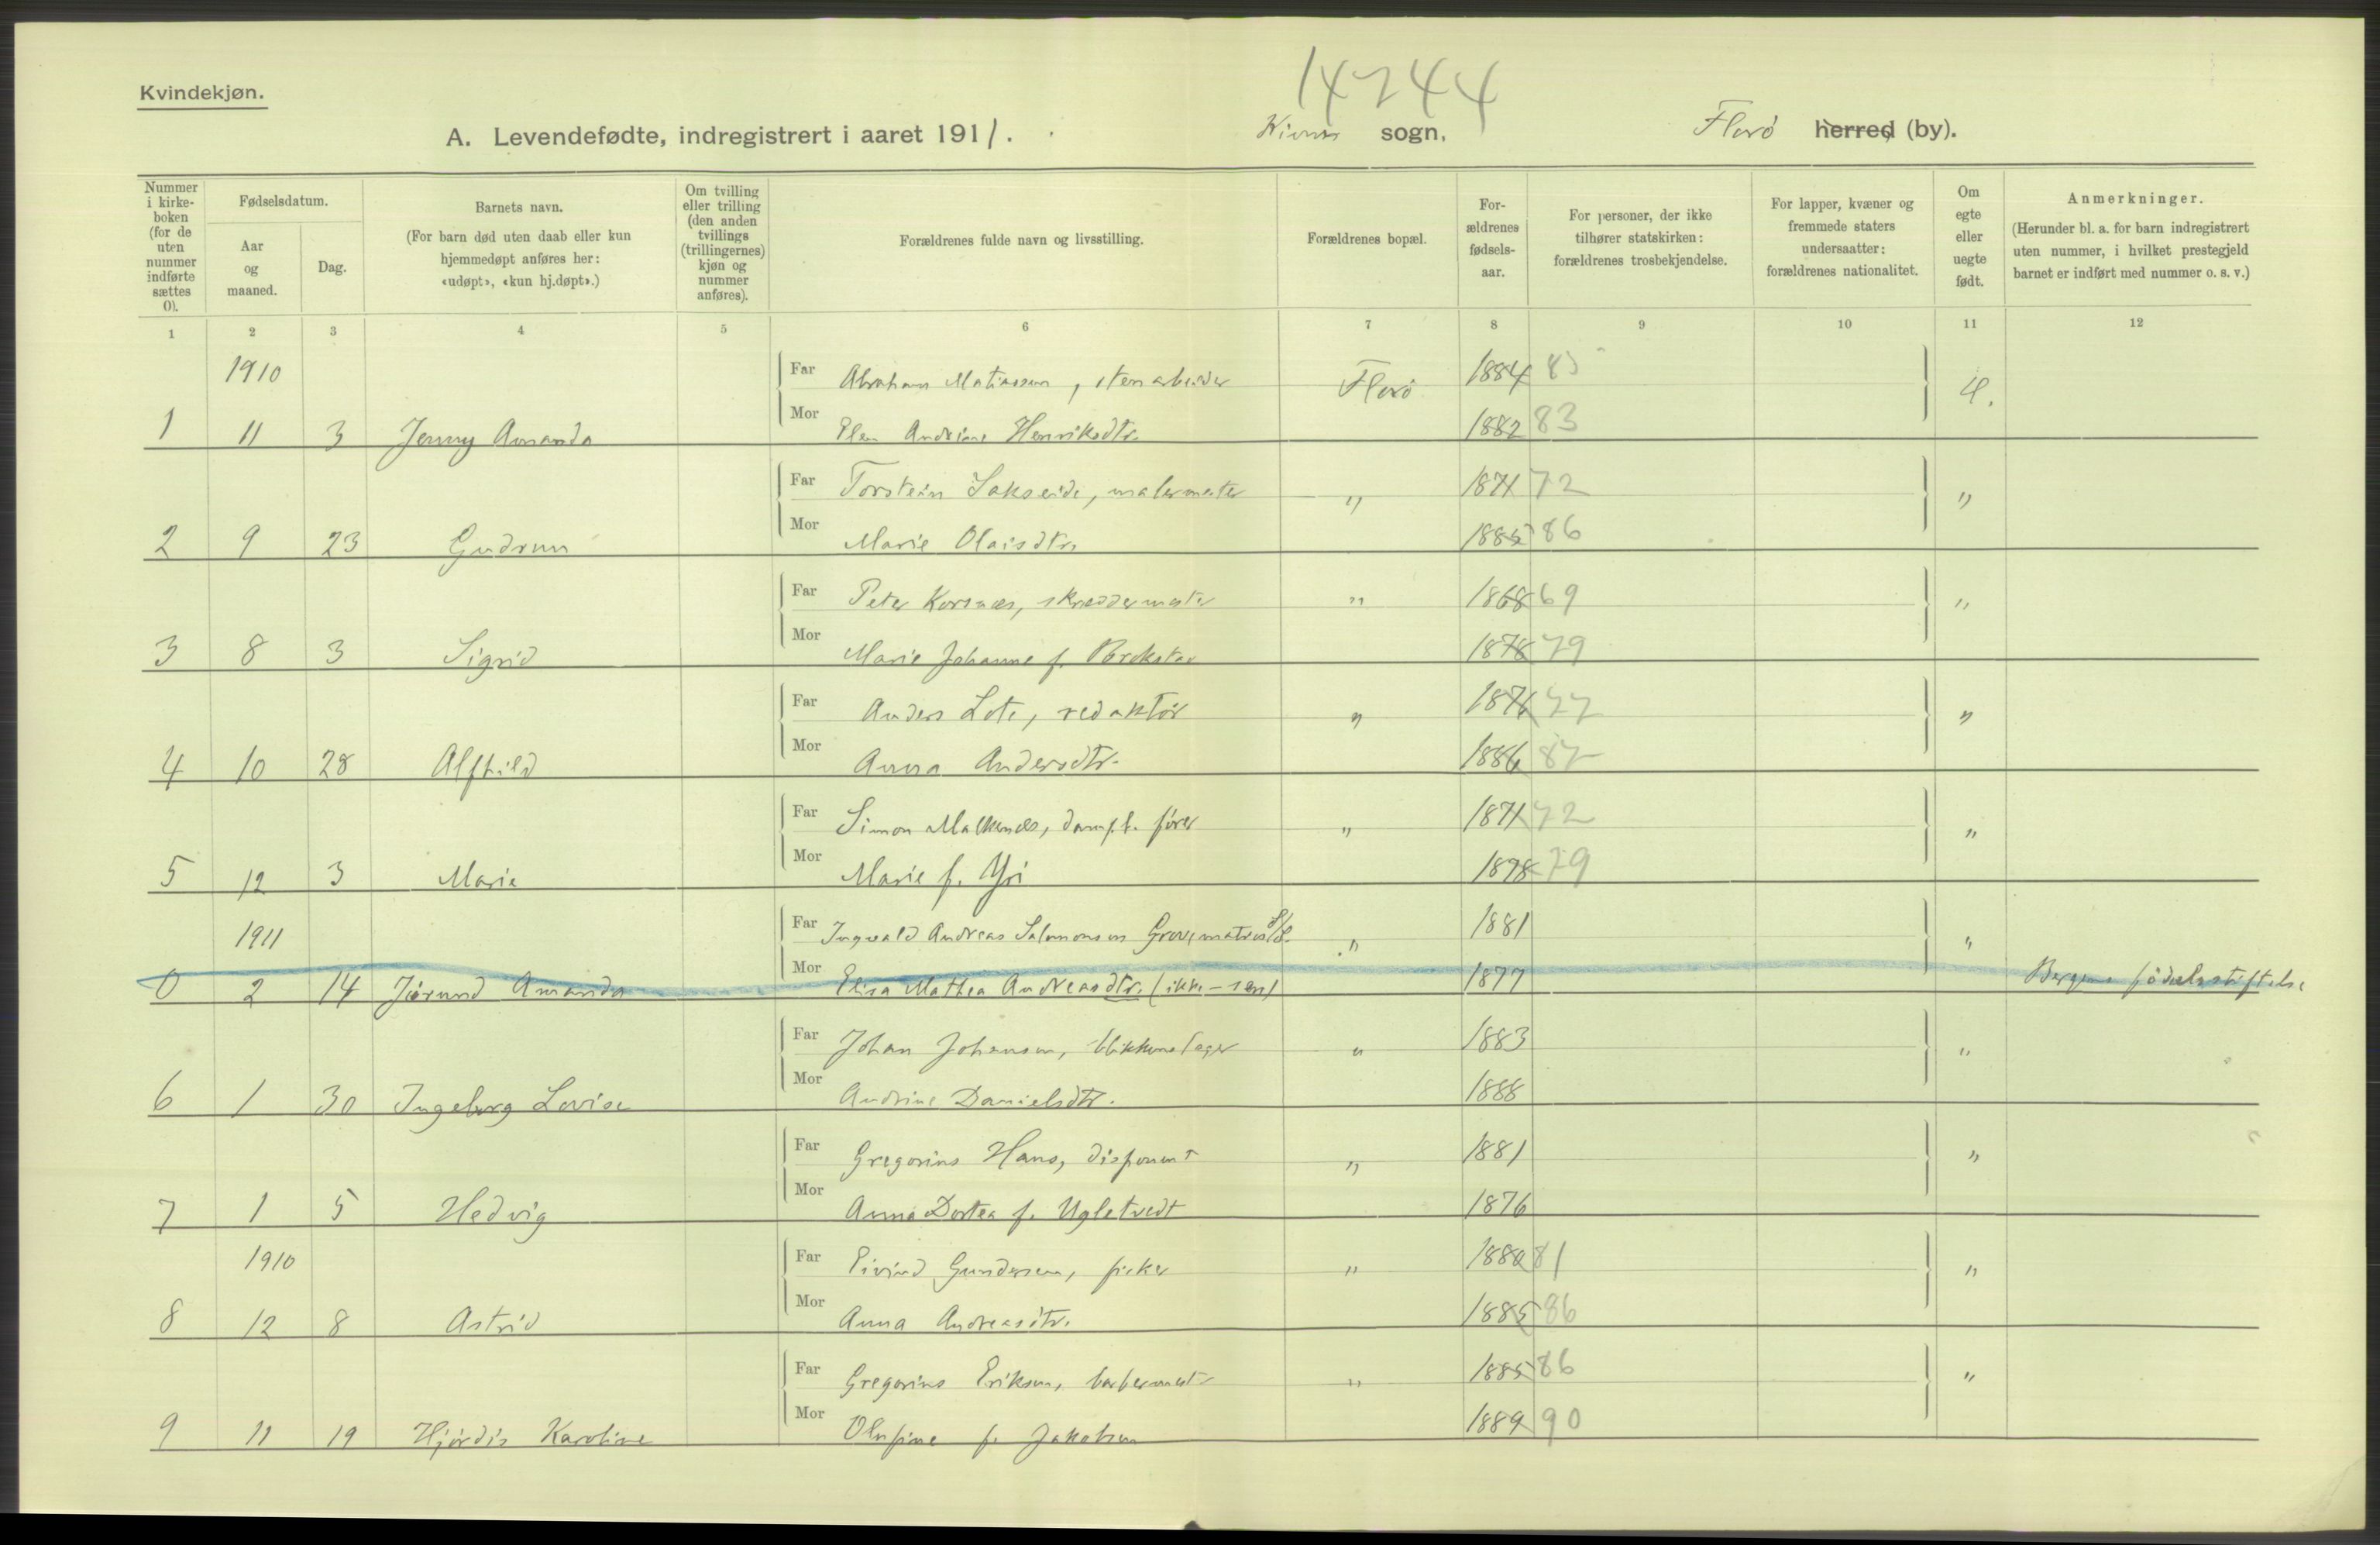 14244
Kvindekjøn.
A. Levendefødte, indregistrert i aaret 1911. Kinn sogn, Florø herred (by).
Nummer i kirke-boken (for de uten nummer indførte sættes 0).
Fødselsdatum.
Aar og maaned.
Dag.
Barnets navn.
(For barn død uten daab eller kun hjemmedøpt anføres her: «udøpt», «kun hj.døpt».)
Om tvilling eller trilling (den anden tvillings (trillingernes) kjøn og nummer anføres).
Forældrenes fulde navn og livsstilling.
Forældrenes bopæl.
For-ældrenes fødsels-aar.
For personer, der ikke tilhører statskirken: forældrenes trosbekjendelse.
For lapper, kvæner og fremmede staters undersaatter: forældrenes nationalitet.
Om egte eller uegte født.
Anmerkninger.
(Herunder bl. a. for barn indregistrert uten nummer, i hvilket prestegjeld barnet er indført med nummer o. s. v.)
1 2 3 4 5 6 7 8 9 10 11 12
1910 Far Abraham Matiassen, stenarbeider Florø 1884 85
1 11 3 Jenny Amanda Mor Elen Andrine Henriksdtr. 1882 83
Far Torstein Sakseide, malermester " 1871 72 "
2 9 23 Gudrun Mor Marie Olaisdtr. 1885 86
Far Peter Korsnæs, skreddermester " 1868 69 "
3 8 3 Sigrid Mor Marie Johanne f. 1878 79
Far Anders Lote, redaktør " 1876 77 "
4 10 28 Alfhild Mor Anna Andersdtr. 1886 87
Far Simon dampsk. fører " 1871 72 "
5 12 3 Marie Mor Marie f. Yri 1878 79
1911 Far Ingvald Andreas Salomonsen Grov, matros " 1881 "
0 2 14 Jørund Amanda Mor Elisa Mathea Andreasdtr. (ikke - sen) 1877 Bergens fødselsstiftelse
Far Johan Johansen, blikkenslager " 1883 "
6 1 30 Ingeborg Lovise Mor Andrine Danielsdtr. 1888
Far Gregorius Hans, disponent " 1881 "
7 1 5 Hedvig Mor Anna Dortea f. Ugletvedt 1876
1910 Far Eivind Gundersen, fisker " 1880 81 "
8 12 8 Astrid Mor Anna Andreasdtr. 1885 86
Far Gregorius Eriksen, barbermest. " 1885 86 "
9 11 19 Hjørdis Karoline Mor Olufine f. Jakobsen 1889 90